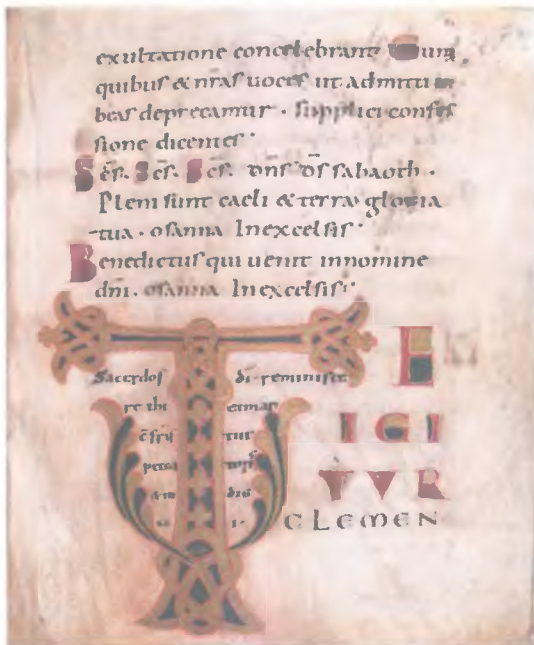 exultatione concelebrant. Cum
quibus & nr̄as uoces ut admitti iu
beas deprecamur. supplici confes
sione dicentes.
Sc̄s. Sc̄s. Sc̄s. dn̄s d̄s sabaoth.
Pleni sunt caeli & terra gloria
tua. osanna Inexcelsis.
Benedictus qui uenit innomine
dn̄i. osanna Inexcelsis.
T E
Sacerdos d̄i reminisce
re thi etmar
IGI
TVR
CLEMEN